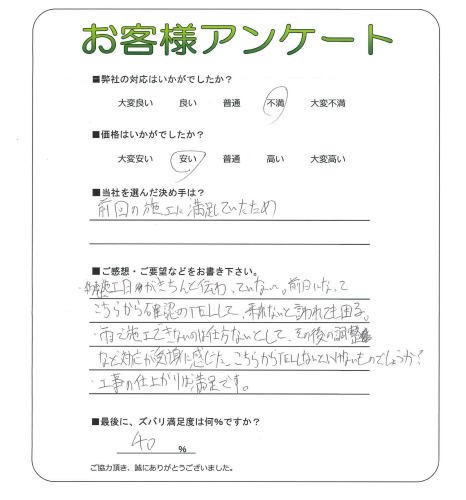 お客様アンケート
■弊社の対応はいかがでしたか？
大変良い 良い 普通 不満 大変不満
■価格はいかがでしたか？
大変安い 安い 普通 高い 大変高い
■当社を選んだ決め手は？
前回の施工に満足していたため
■ご感想・ご要望などをお書き下さい。
・施工日がきちんと伝わっていない。前日になって
こちらから確認のTELして、来れないと言われても困る。
・雨で施工できないのは仕方ないとして、その後の調整
など対応が受身に感じた。こちらからTELしないといけないものでしょうか？
・工事の仕上がりは満足です。
■最後に、ズバリ満足度は何%ですか？
40 %
ご協力頂き、誠にありがとうございました。